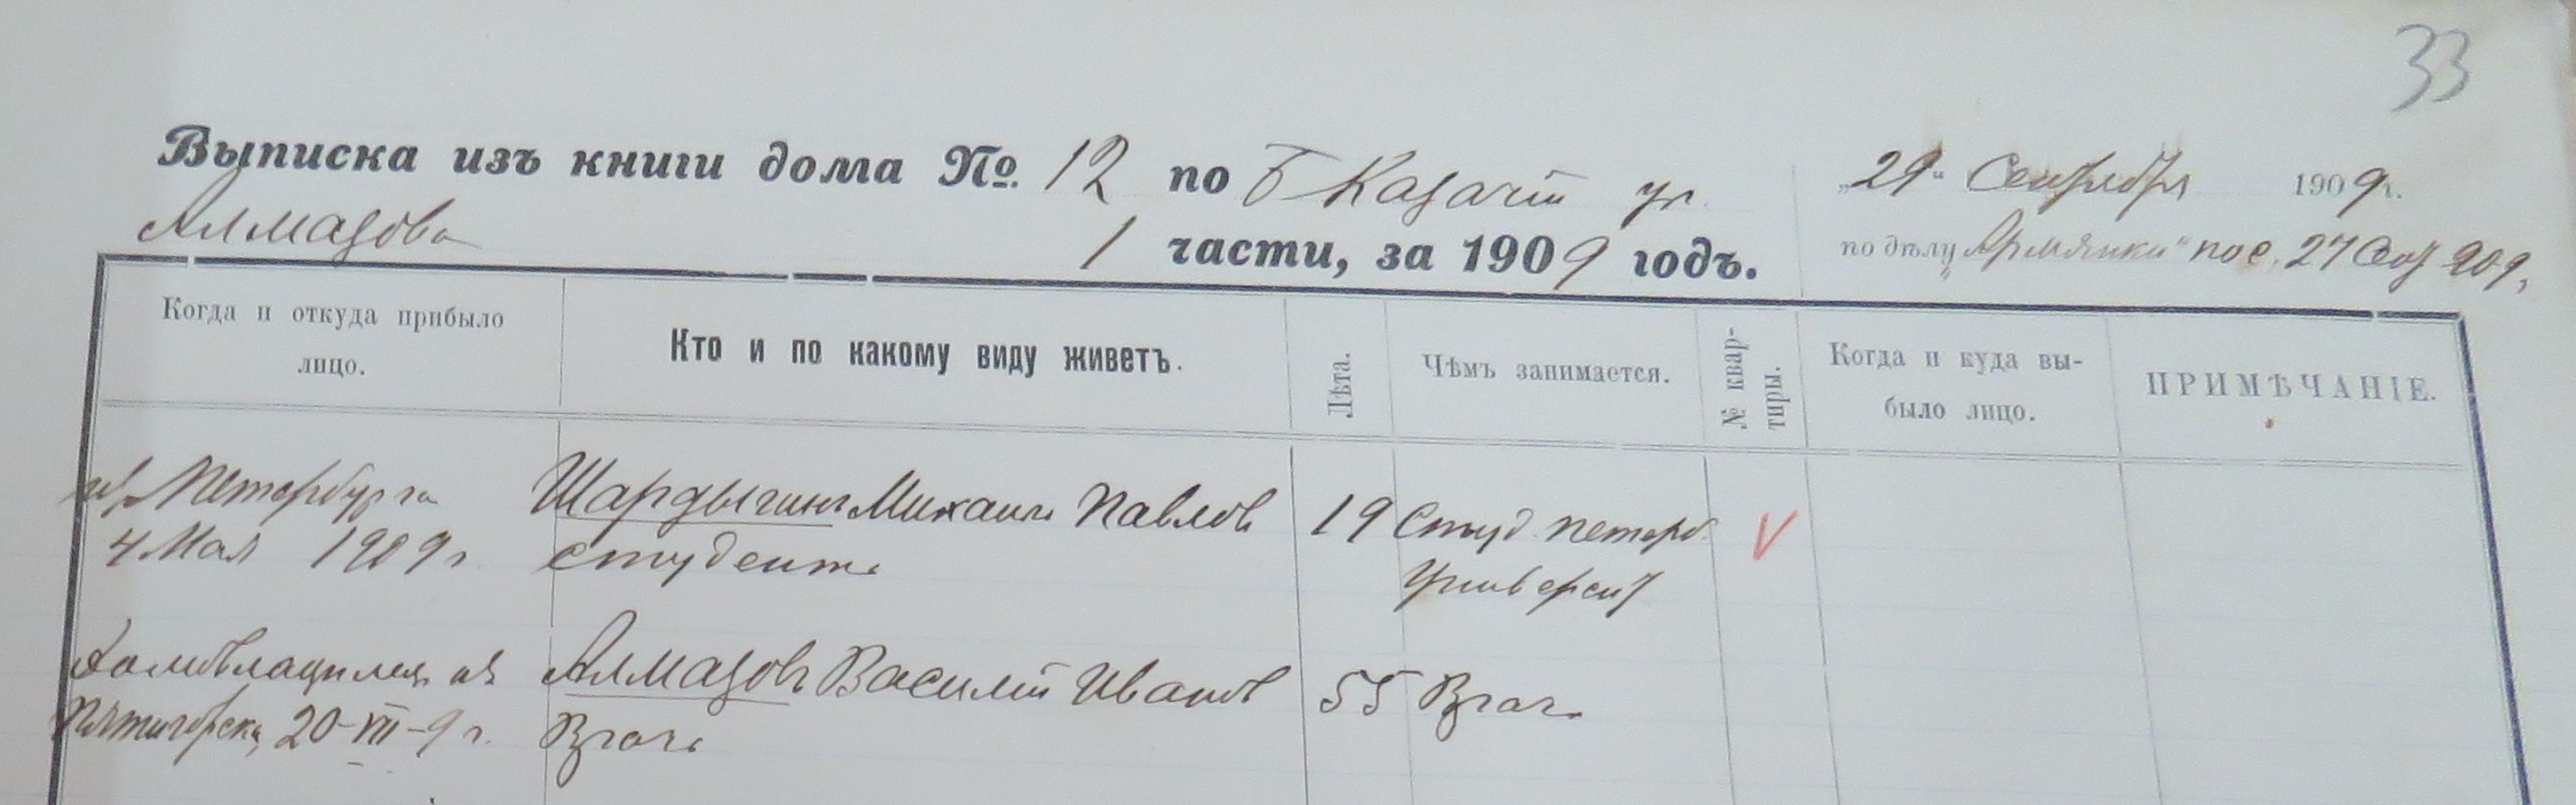 33
Выписка изъ книги дома №. 12 по Б Казачей ул.
„29“ Сентября 1909 г.
Алмазова
1 части, за 1909 годъ.
по дѣлу „Армянки“ пос. 27 Сен 909,
Когда и откуда прибыло
лицо.
Кто и по какому виду живетъ.
Лѣта.
Чѣмъ занимается.
№ квар-
тиры.
Когда и куда вы-
было лицо.
ПРИМѢЧАНІЕ.
из Петербурга
4 Мая 1909 г.
Шардыгинъ Михаилъ Павлов
студентъ
19
Студ. Петерб.
Университ
V
из
Пятигорска, 20-VII-9 г.
Алмазовъ Василій Иванов
Врачъ
55
Врачъ